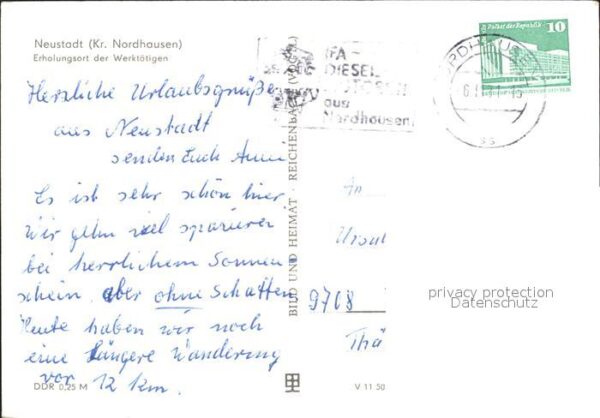 Neustadt (Kr. Nordhausen)
Erholungsort der Werktätigen
Herzliche Urlaubsgrüße
aus Neustadt
senden Euch Anni
Es ist sehr schön hier,
wir gehn viel spazieren
bei herrlichem Sonnen
schein, aber ohne Schatten
Heute haben wir noch
eine längere Wanderung
vor 12 km.
DDR 0,25 M
BILD UND HEIMAT · REICHENBACH (VOGTL)
V 11 50
IFA-
DIESEL
MOTOREN
aus
Nordhausen
NORDHAUSEN
Palast der Republik
10
An
Ursul
9708
Thä
privacy protection
Datenschutz